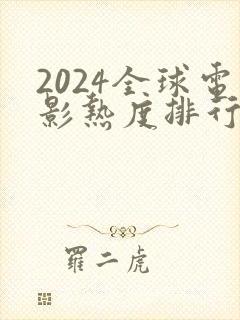 2024全球電
影熱度排行
羅二虎